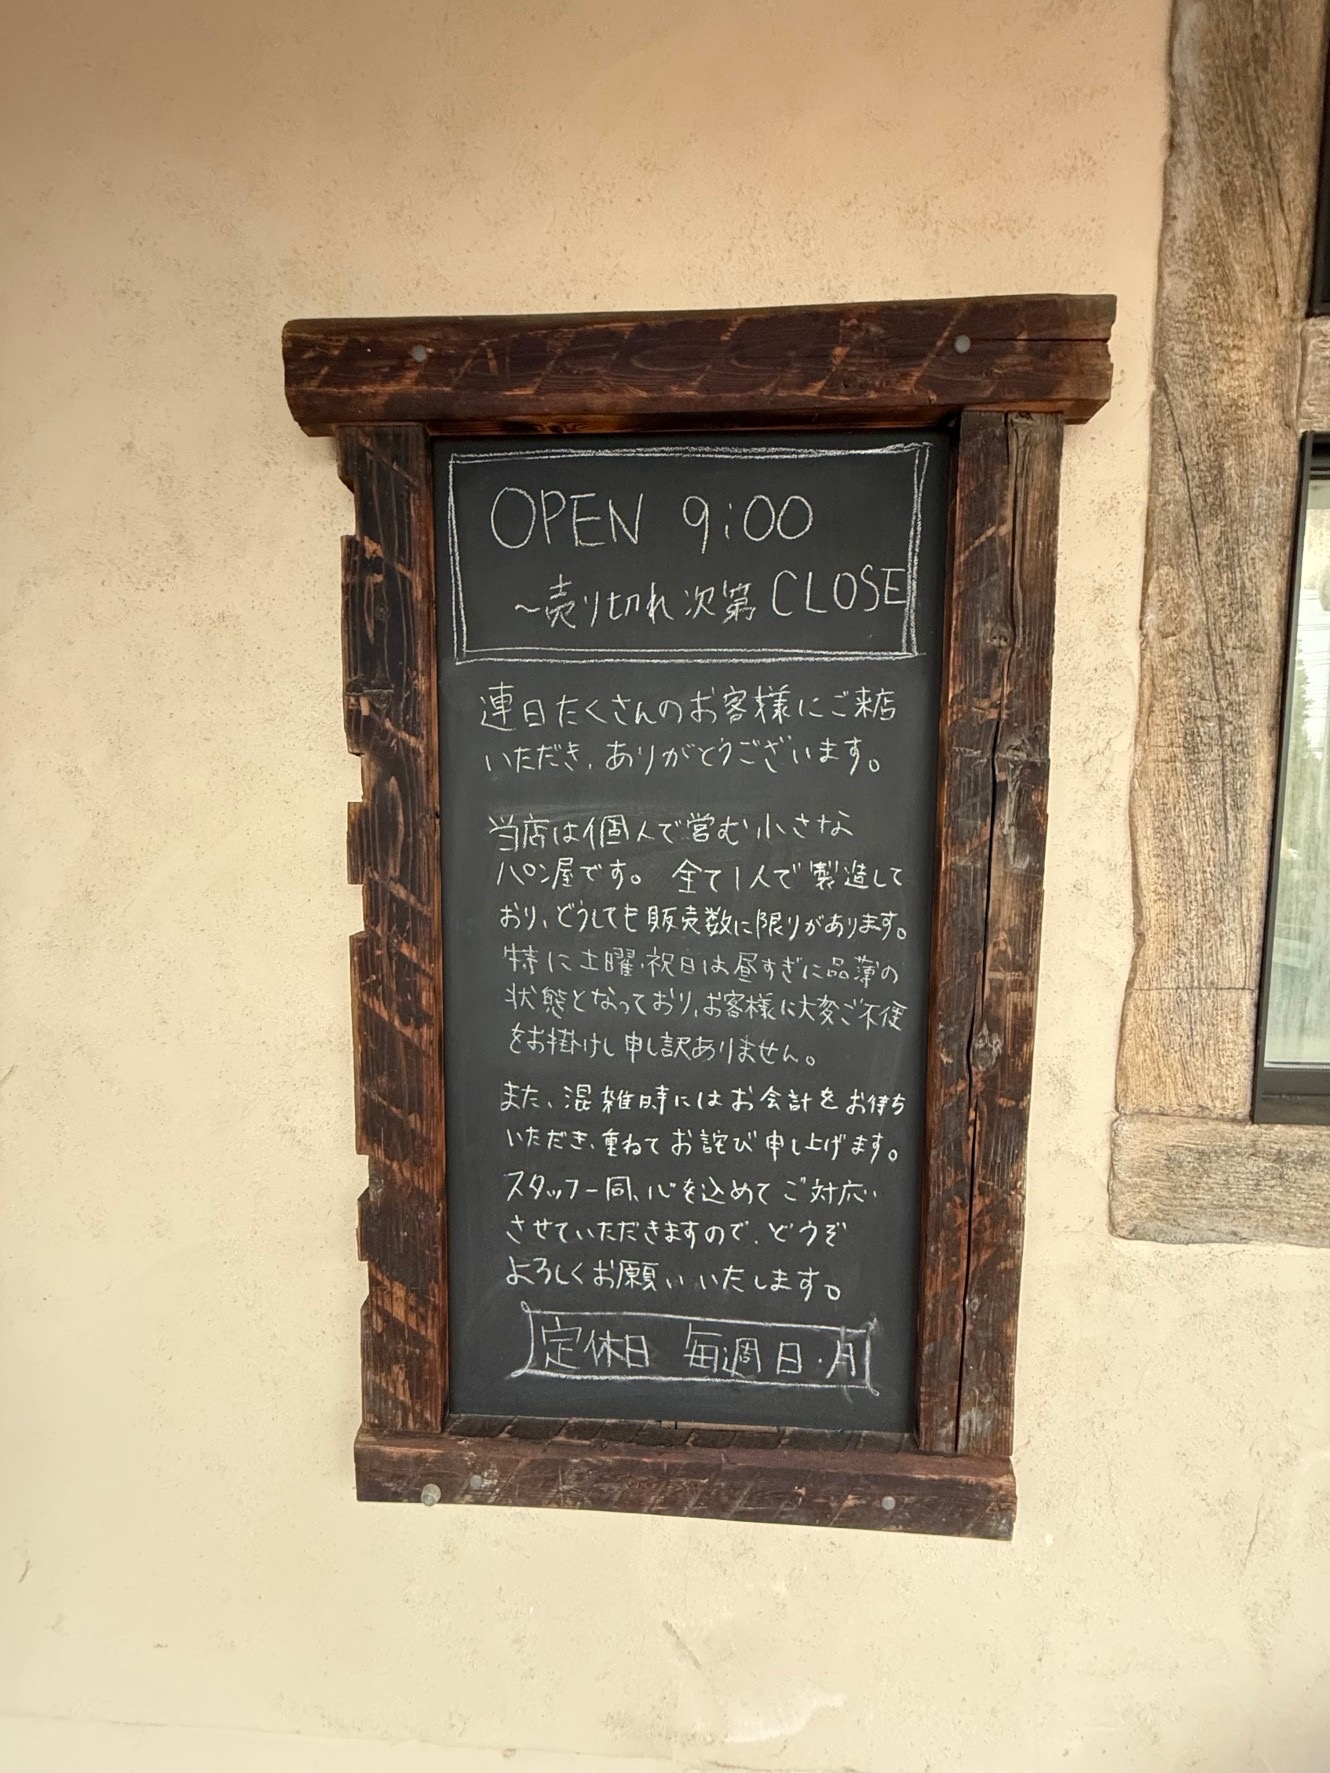 OPEN 9:00
~売り切れ次第 CLOSE
連日たくさんのお客様にご来店
いただき、ありがとうございます。
当店は個人で営む小さな
パン屋です。 全て1人で製造して
おり、どうしても販売数に限りがあります。
特に土曜・祝日は昼すぎに品薄の
状態となっており、お客様に大変ご不便
をお掛けし申し訳ありません。
また、混雑時にはお会計をお待ち
いただき、重ねてお詫び申し上げます。
スタッフ一同、心を込めてご対応
させていただきますので、どうぞ
よろしくお願いいたします。
定休日 毎週日・月